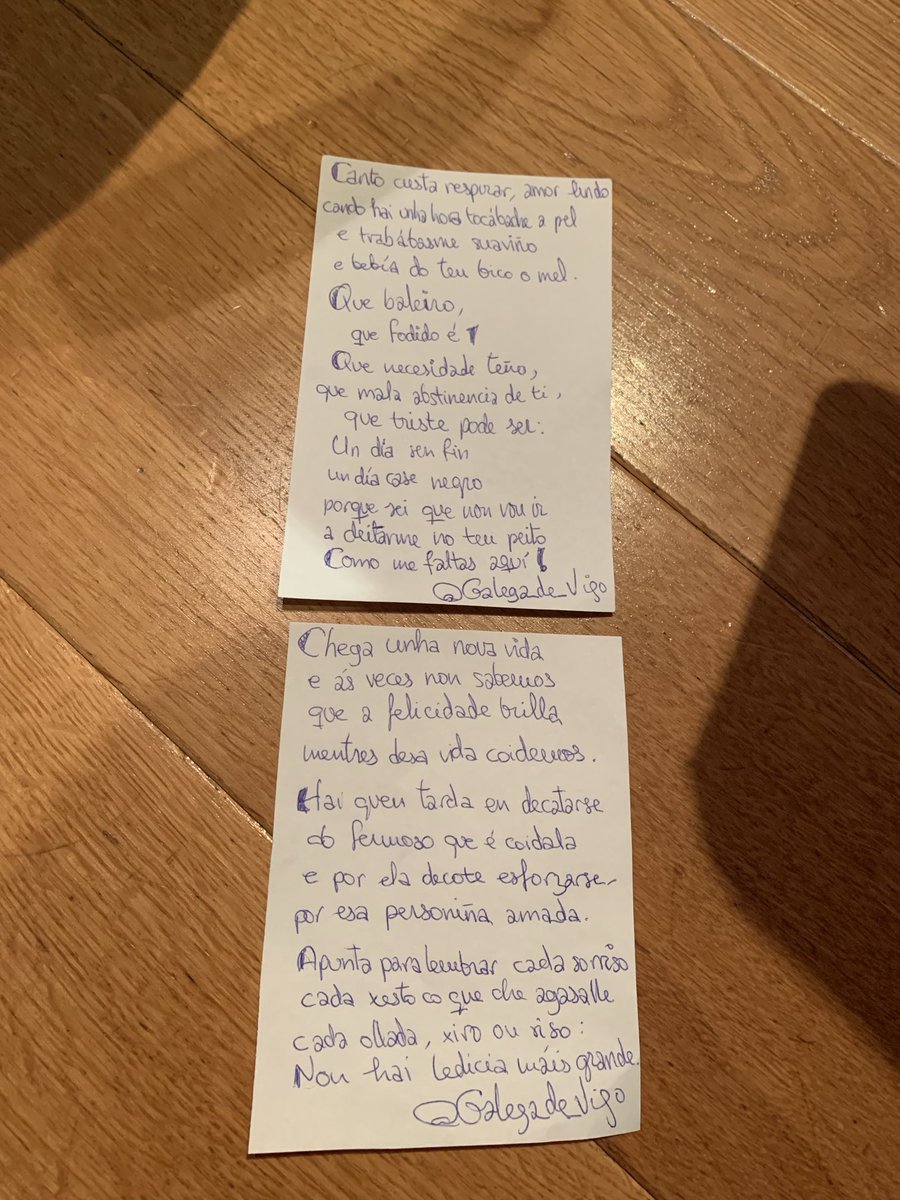 Canto custa respirar, amor lindo
cando hai unha hora tocábache a pel
e trabábasme suaviño
e bebía do teu bico o mel.
Que baleiro,
que fodido é!
Que necesidade teño,
que mala abstinencia de ti,
que triste pode ser:
Un día sen fin
un día case negro
porque sei que non vou ir
a deitarme no teu peito
Como me faltas aquí!
@Galega_de_Vigo
Chega unha nova vida
e ás veces non sabemos
que a felicidade brilla
mentres desa vida coidemos.
Hai quen tarda en decatarse
do fermoso que é coidala
e por ela decote esforzarse
por esa personiña amada.
Apunta para lembrar cada sorriso
cada xesto co que che agasalle
cada ollada, xiro ou riso:
Non hai ledicia máis grande.
@Galega_de_Vigo